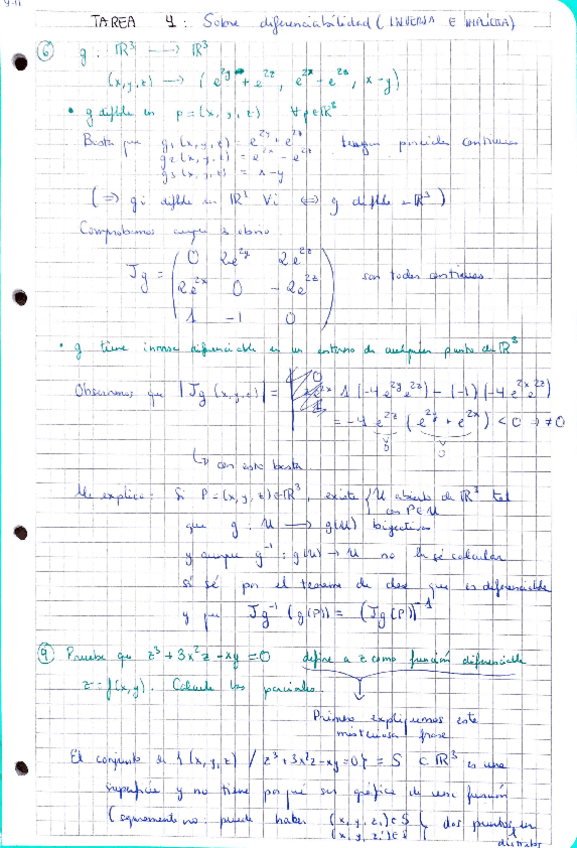 TAREA 4: Sobre diferenciabilidad (INVERSA E IMPLÍCITA)
⑥ g: ℝ³ ⟶ ℝ³
(x,y,z) ⟶ (e^{2y}+e^{2z}, e^{2x}-e^{2z}, x-y)
• g difble en p=(x,y,z) ∀p∈ℝ³
Basta que g₁(x,y,z) = e^{2y}+e^{2z} tengan parciales continuas
g₂(x,y,z) = e^{2x}-e^{2z}
g₃(x,y,z) = x-y
(⇒ gi difble en ℝ³ ∀i ⟺ g difble en ℝ³)
Comprobamos aunque es obvio
Jg = ( 0 2e^{2y} 2e^{2z}
2e^{2x} 0 -2e^{2z} son todas continuas
1 -1 0 )
• g tiene inversa diferenciable en un entorno de cualquier punto de ℝ³
Observamos que |Jg(x,y,z)| = 1(-4e^{2y}e^{2z}) - (-1)(-4e^{2x}e^{2z})
= -4e^{2z}(e^{2y}+e^{2x}) < 0 → ≠0
↳ con esto basta
Me explico: Si P=(x,y,z)∈ℝ³, existe U abierto de ℝ³ tal
con P∈U
que g: U ⟶ g(U) biyectiva
y aunque g⁻¹: g(U) → U no la sé calcular
sí sé por el teorema de clase que es diferenciable
y que Jg⁻¹(g(P)) = (Jg(P))⁻¹
⑨ Prueba que z³+3x²z-xy=0 define a z como función diferenciable
z=f(x,y). Calcula las parciales.
Primero expliquemos esta
misteriosa frase
El conjunto de {(x,y,z) / z³+3x²z-xy=0} = S ⊂ ℝ³ es una
superficie y no tiene por qué ser gráfica de una función
puede haber (x,y,z)∈S dos puntos en
(x,y,z')∈S
distintos